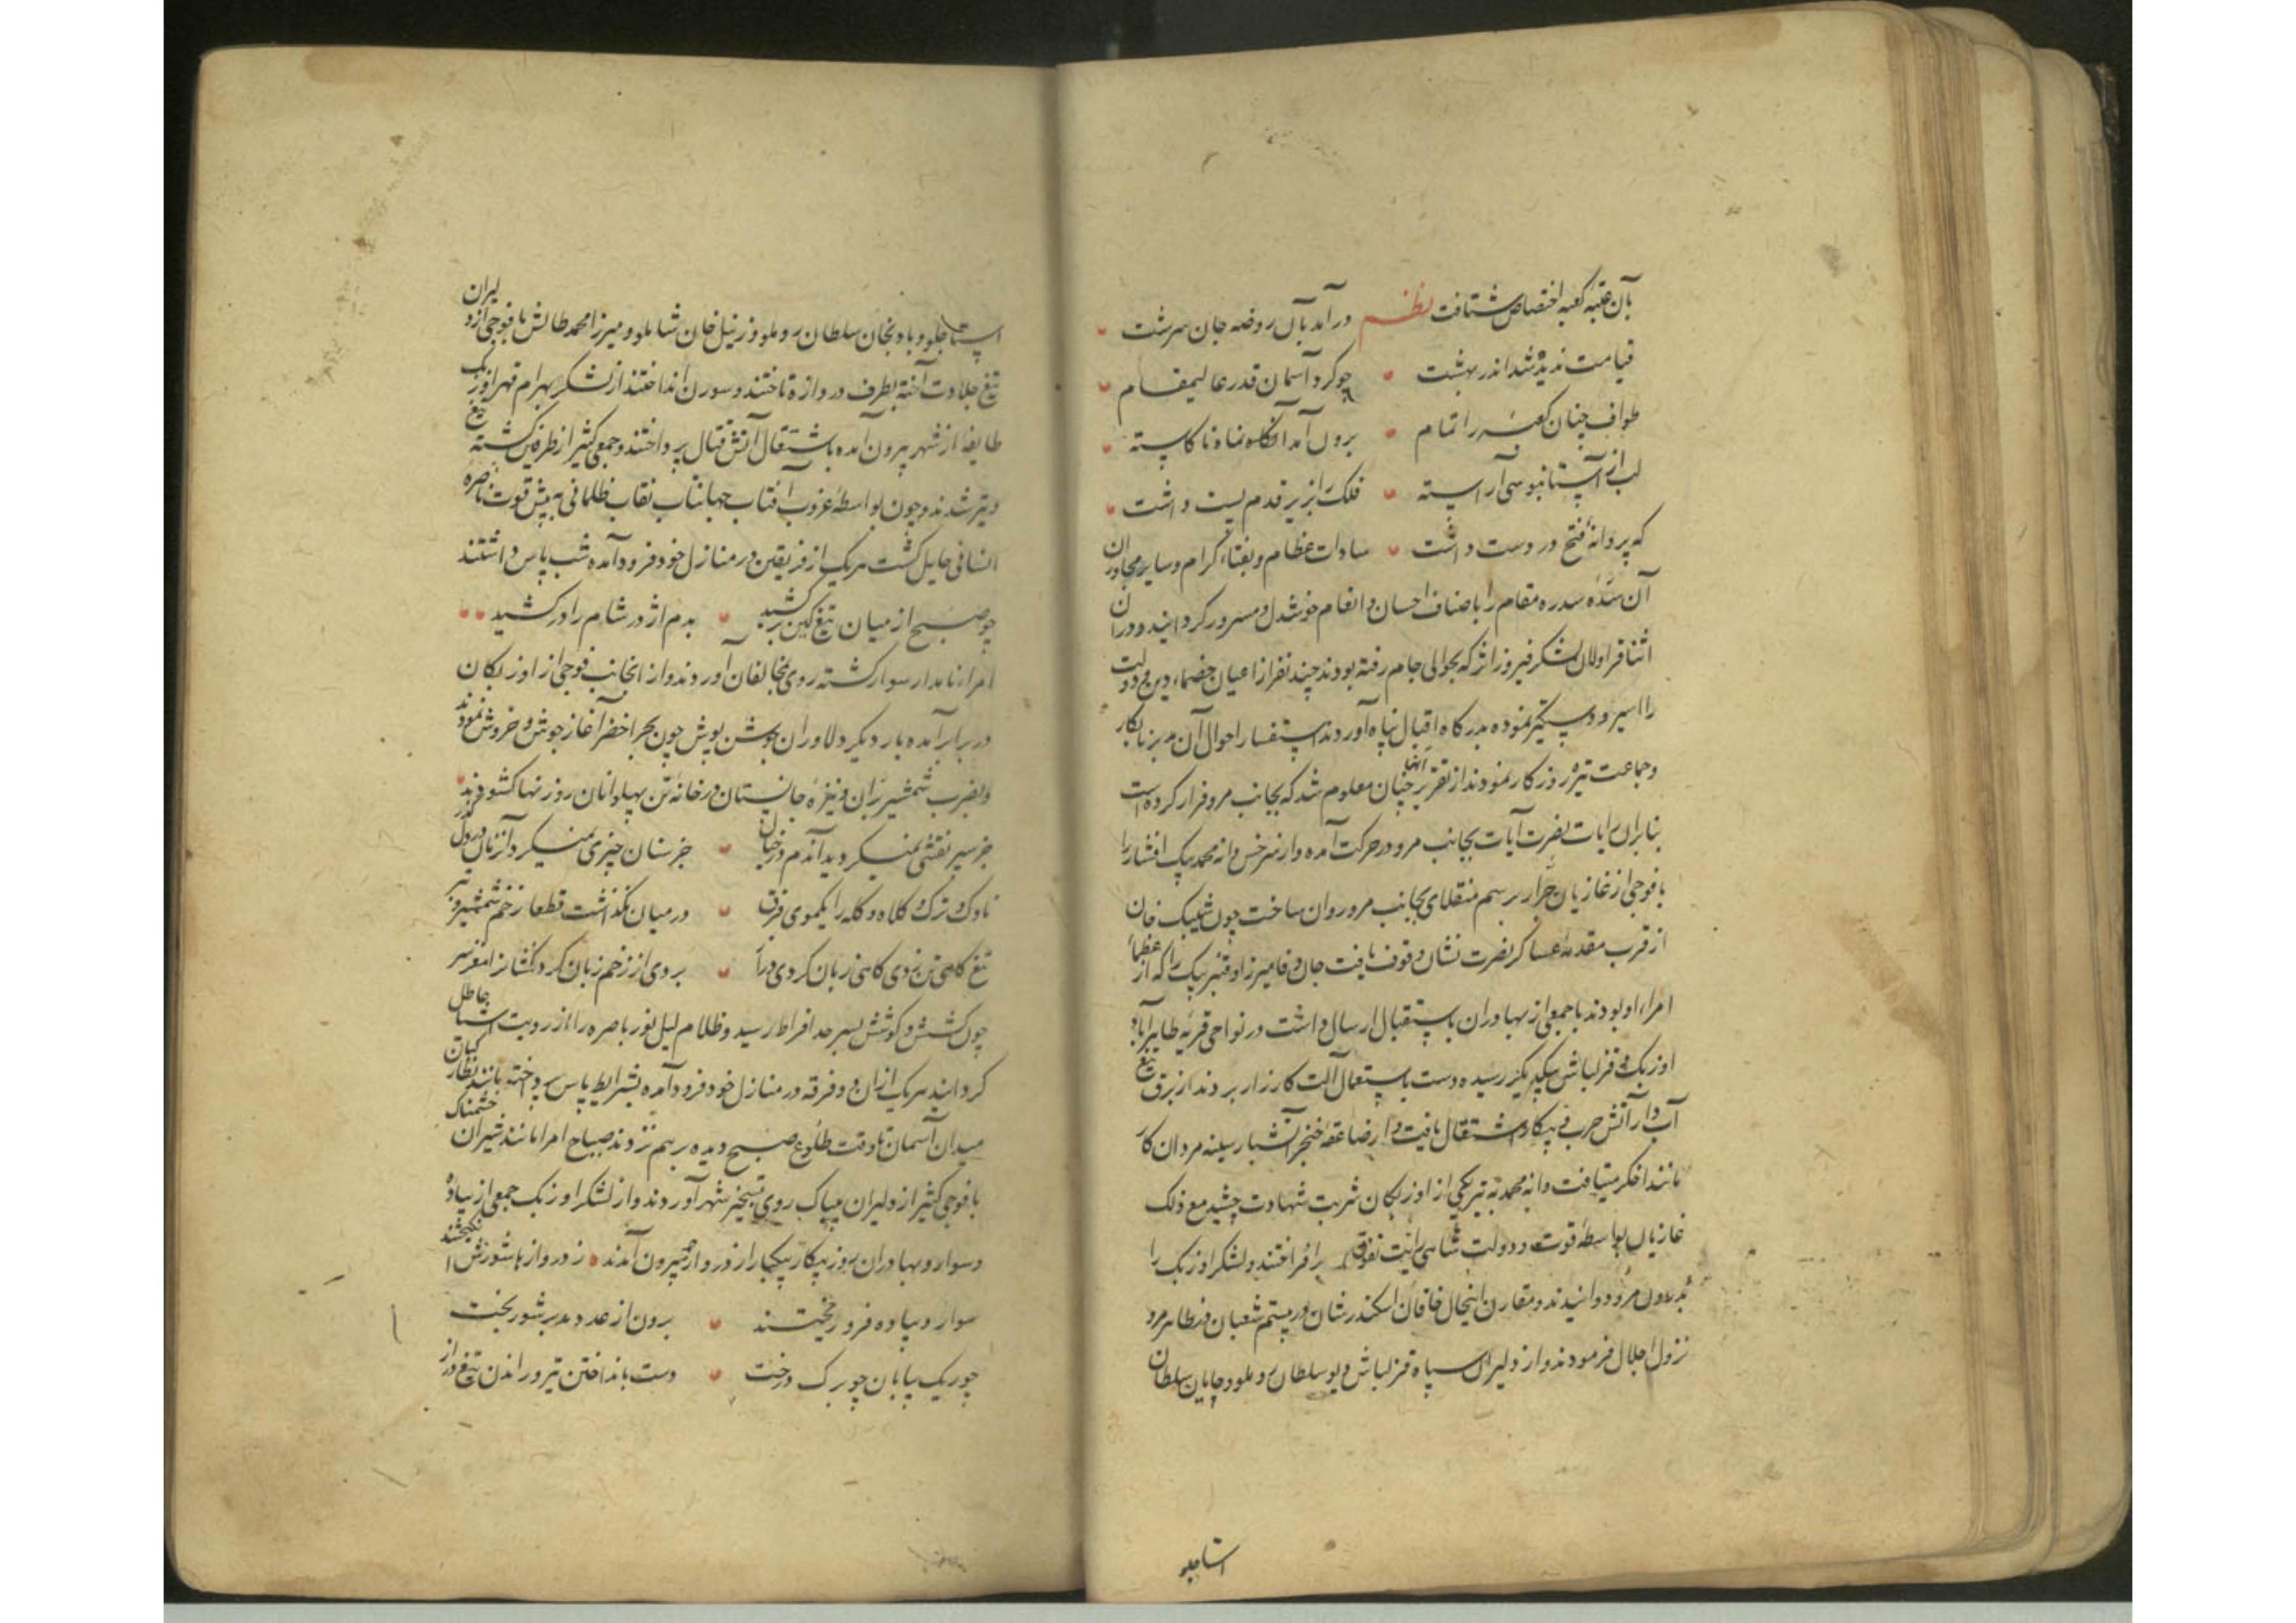 بآن عتبه کعبه اختصاص شتافت نظم درآمد بآن روضه جان سرشت
قیامت ندیده شد اندر بهشت چو کرد آسمان قدر عالیمقام
طواف چنان کعبه را تمام برون آمد آنگاه ناکاسته
لب از آستانبوسی آراسته فلک را زیر قدم پست داشت
که پروانهٔ فتح در دست داشت سادات عظام و نقباء کرام و سایر مجاوران
آن سدهٔ سدره مقام را باصناف احسان و انعام خوشدل و مسرور گردانید و در آن
اثنا قراولان لشکر فیروز اثر که بحوالی جام رفته بودند چند نفر از اعیان خصماء دین و دولت
را اسیر و دستگیر نموده بدرگاه اقبال پناه آوردند استفسار احوال آن مدبر نابکار
و جماعت تیره روزگار نمودند از تقریر آنها چنان معلوم شد که بجانب مرو فرار کرده است
بنابر آن رایات نصرت آیات بجانب مرو در حرکت آمده و از سرخس دانه محمد بیک افشار را
با فوجی از غازیان جرار برسم منقلای بجانب مرو روان ساخت چون شیبک خان
از قرب مقدمهٔ عساکر نصرت نشان وقوف یافت جان وفا میرزا و قنبر بیک را که از عظماء
امراء او بودند با جمعی از بهادران باستقبال ارسال داشت در نواحی قریه طاهرآباد
اوزبک و قزلباش بیکدیگر رسیده دست باستعمال آلت کارزار بردند از برق تیغ
آب دار آتش حرب و پیکار اشتعال یافت و از صاعقه خنجر آتشبار سینه مردان کار
مانند اخگر میتافت دانه محمد به تیر یکی از اوزبکان شربت شهادت چشید مع ذلک
غازیان بواسطهٔ قوت دولت شاهی رایت تفوق برافراختند و لشکر اوزبک را
بدرون مرو دوانیدند و مقارن اینحال خاقان اسکندر شان در بیستم شعبان در ظاهر مرو
نزول اجلال فرمودند و از دلیران سپاه قزلباش دیو سلطان روملو و چایان سلطان
استاجلو
استاجلو و بادنجان سلطان روملو و زینل خان شاملو و میرزا محمد طالش با فوجی از دلیران
تیغ جلادت آخته بطرف دروازه تاختند و سورن انداختند از لشکر بهرام قهر اوزبک
طایفهٔ از شهر بیرون آمده باشتعال آتش قتال پرداختند و جمعی کثیر از طرفین کشته تیغ
و تیر شدند و چون بواسطهٔ غروب آفتاب جهانتاب نقاب ظلمانی پیش قوت باصره
انسانی حایل گشت هریک از فریقین در منازل خود فرود آمده شب پاس داشتند
چو صبح از میان تیغ کین برکشید بدم اژدر شام را درکشید
امراء نامدار سوار گشته روی بمخالفان آوردند و از آنجانب فوجی از اوزبکان
در برابر آمده بار دیگر دلاوران جوشن پوش چون بحر اخضر آغاز جوش و خروش نمودند
و بضرب شمشیر بران و نیزهٔ جانستان در خانه تن پهلوانان روزنها گشودند
جز سپر نقشی نمیگردید آندم در خیال جز سنان چیزی نمیکرد آنزمان در دل گذر
ناوک ترک کلاه و کله را یکموی فرق در میان نگذاشت قطعا زخم شمشیر و تبر
تیغ گاهی تن زدی گاهی زبان کردی دراز بروی از زخم زبان گرد کشان را مغز سر
چون کشش و کوشش بسر حد افراط رسید و ظلام لیل نور باصره را از رویت اشباح عاطل
گردانید هریک از آن دو فرقه در منازل خود فرود آمده بشرایط پاس پرداخته مانند نظارگیان
میدان آسمان تا وقت طلوع صبح دیده برهم نزدند صباح امرا مانند شیران خشمناک
با فوجی کثیر از دلیران بیباک روی بتسخیر شهر آوردند و از لشکر اوزبک جمعی از پیاده
و سوار و بهادران روز پیکار بیکبار از دروازه بیرون آمدند ز دروازها شورش انگیختند
سوار و پیاده فرو ریختند برون از عدد مدبر شور بخت
چو ریگ بیابان چو برگ درخت دست بانداختن تیر و راندن تیغ دراز